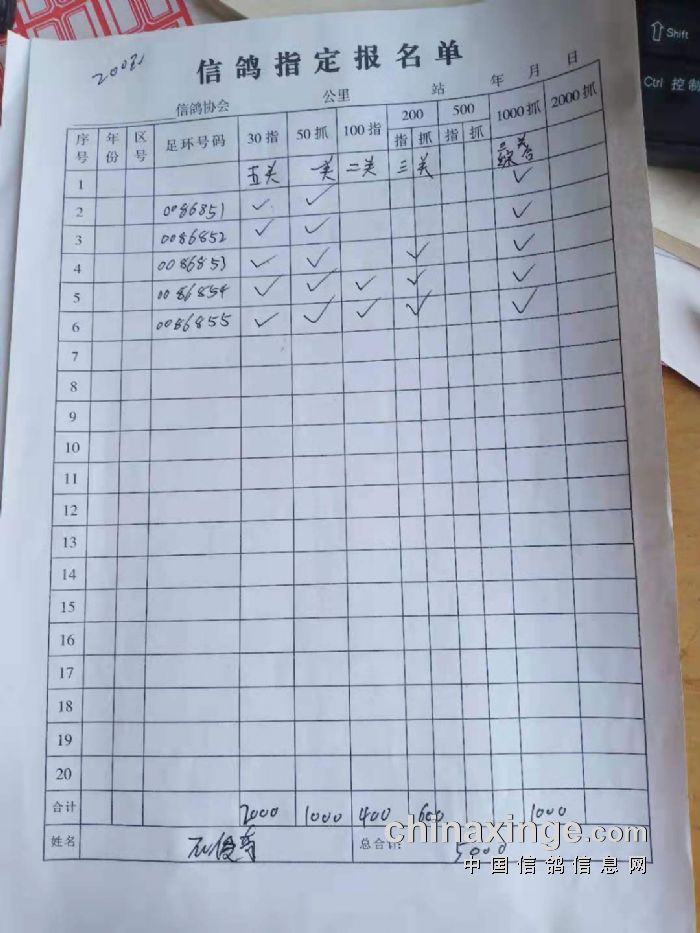 Shift
Ctrl 控制
20081
信鸽指定报名单
信鸽协会 公里 站 年 月 日
序号 年份 区号 足环号码 30指 50抓 100指 200 指 抓 500 指 抓 1000抓 2000抓
1 五关 一关 二关 三关 三关 综合
2 0086851 ✓ ✓ ✓
3 0086852 ✓ ✓ ✓
4 0086853 ✓ ✓ ✓ ✓
5 0086854 ✓ ✓ ✓ ✓ ✓
6 0086855 ✓ ✓ ✓ ✓ ✓
7
8
9
10
11
12
13
14
15
16
17
18
19
20
合计 2000 1000 400 600 1000
姓名 总合计: 5000
chinaxinge.com
中国信鸽信息网